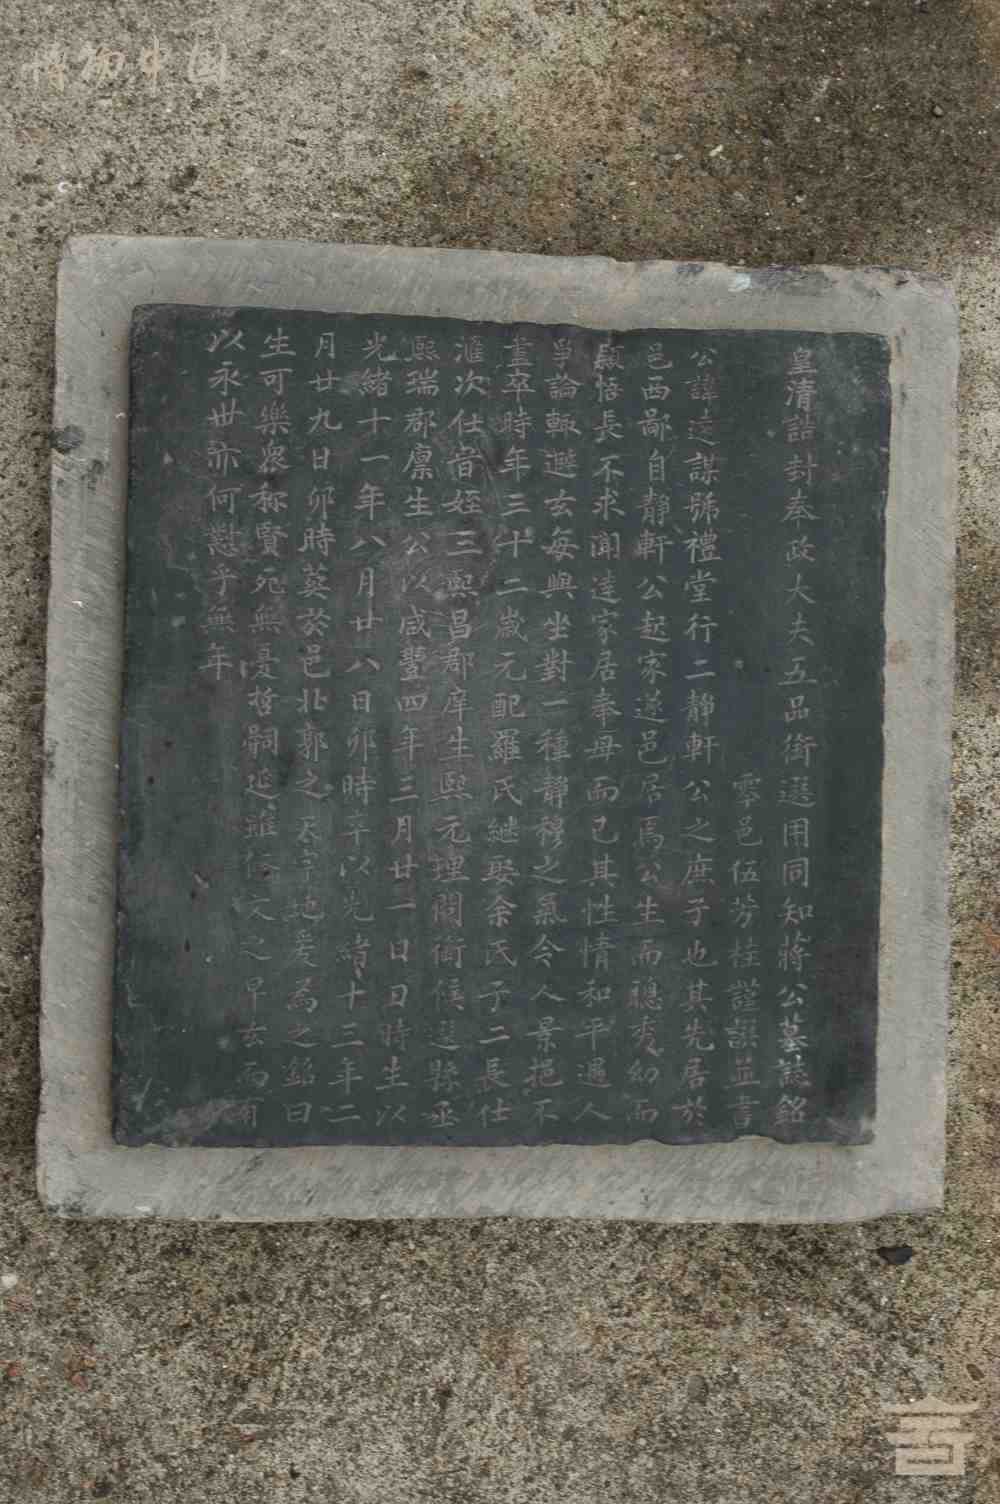 博物中国
皇清誥封奉政大夫五品銜選用同知蔣公墓誌銘
零邑伍芳桂謹譔並書
公諱遠謀號禮堂行二靜軒公之庶子也其先居於
邑西鄙自靜軒公起家遂邑居焉公生而聰秀幼而
穎悟長不求聞達家居奉母而已其性情和平遇人
爭論輒避去每與坐對一種靜穆之氣令人景挹不
置卒時年三十二歲元配羅氏継娶余氏子二長仕
滙次仕 姪三熙昌郡庠生熙元理問銜候選縣丞
熙瑞郡廪生公以咸豐四年三月廿一日日時生以
光緒十一年八月廿八日卯時卒以光緒十三年二
月廿九日卯時葬於邑北郭之 爰為之銘曰
生可樂衆稱賢死無憂哲嗣延雖 之早去而有
以永世亦何懟乎無年